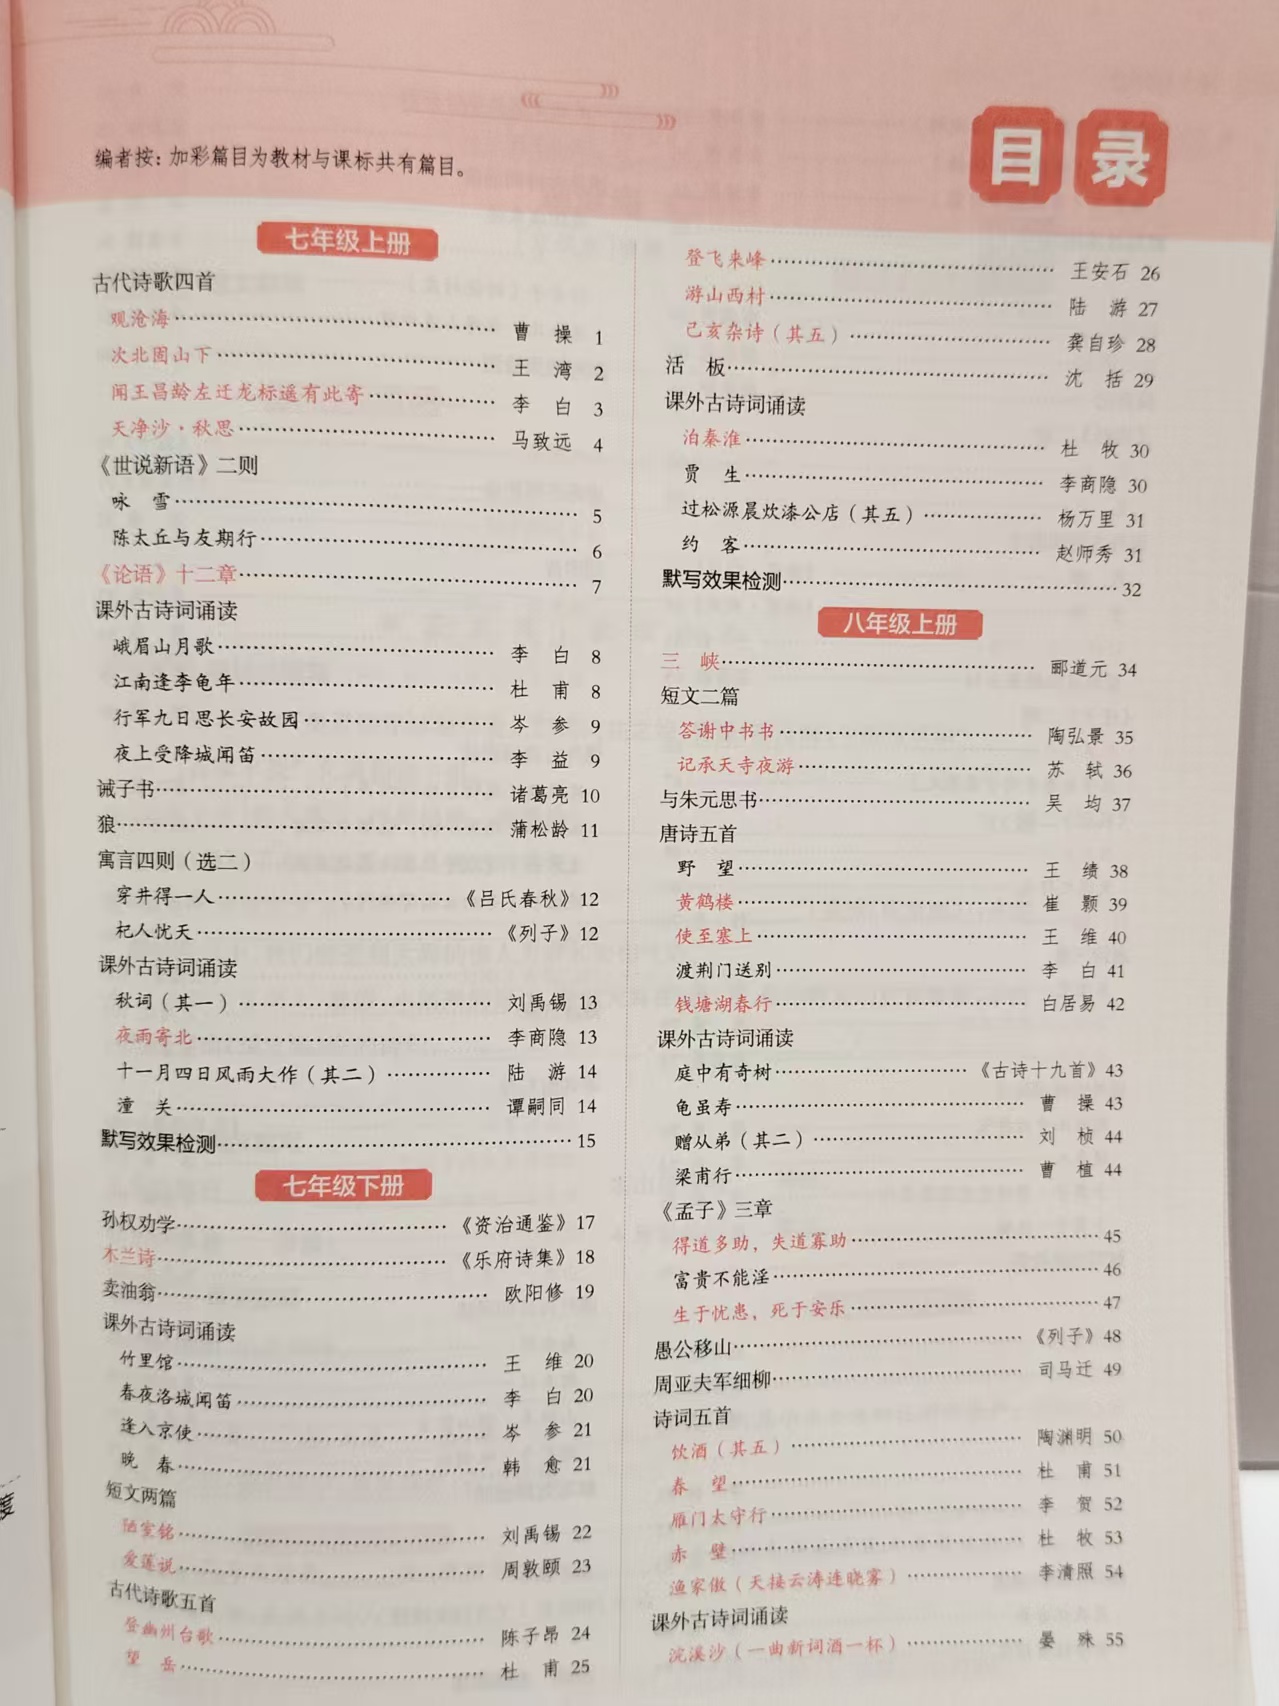 目录
编者按：加彩篇目为教材与课标共有篇目。
七年级上册
古代诗歌四首
观沧海 曹操 1
次北固山下 王湾 2
闻王昌龄左迁龙标遥有此寄 李白 3
天净沙·秋思 马致远 4
《世说新语》二则
咏雪 5
陈太丘与友期行 6
《论语》十二章 7
课外古诗词诵读
峨眉山月歌 李白 8
江南逢李龟年 杜甫 8
行军九日思长安故园 岑参 9
夜上受降城闻笛 李益 9
诫子书 诸葛亮 10
狼 蒲松龄 11
寓言四则（选二）
穿井得一人 《吕氏春秋》12
杞人忧天 《列子》12
课外古诗词诵读
秋词（其一） 刘禹锡 13
夜雨寄北 李商隐 13
十一月四日风雨大作（其二） 陆游 14
潼关 谭嗣同 14
默写效果检测 15
七年级下册
孙权劝学 《资治通鉴》17
木兰诗 《乐府诗集》18
卖油翁 欧阳修 19
课外古诗词诵读
竹里馆 王维 20
春夜洛城闻笛 李白 20
逢入京使 岑参 21
晚春 韩愈 21
短文两篇
陋室铭 刘禹锡 22
爱莲说 周敦颐 23
古代诗歌五首
登幽州台歌 陈子昂 24
望岳 杜甫 25
登飞来峰 王安石 26
游山西村 陆游 27
己亥杂诗（其五） 龚自珍 28
活板 沈括 29
课外古诗词诵读
泊秦淮 杜牧 30
贾生 李商隐 30
过松源晨炊漆公店（其五） 杨万里 31
约客 赵师秀 31
默写效果检测 32
八年级上册
三峡 郦道元 34
短文二篇
答谢中书书 陶弘景 35
记承天寺夜游 苏轼 36
与朱元思书 吴均 37
唐诗五首
野望 王绩 38
黄鹤楼 崔颢 39
使至塞上 王维 40
渡荆门送别 李白 41
钱塘湖春行 白居易 42
课外古诗词诵读
庭中有奇树 《古诗十九首》43
龟虽寿 曹操 43
赠从弟（其二） 刘桢 44
梁甫行 曹植 44
《孟子》三章
得道多助，失道寡助 45
富贵不能淫 46
生于忧患，死于安乐 47
愚公移山 《列子》48
周亚夫军细柳 司马迁 49
诗词五首
饮酒（其五） 陶渊明 50
春望 杜甫 51
雁门太守行 李贺 52
赤壁 杜牧 53
渔家傲（天接云涛连晓雾） 李清照 54
课外古诗词诵读
浣溪沙（一曲新词酒一杯） 晏殊 55